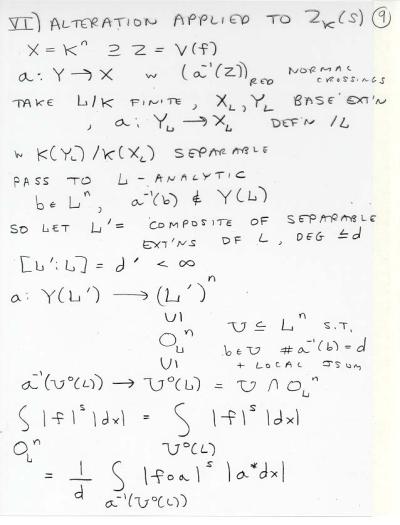 VI) ALTERATION APPLIED TO Z_K(s) 9
X = K^n ⊇ Z = V(f)
a: Y → X w (a^{-1}(Z))_{RED} NORMAL CROSSINGS
TAKE L/K FINITE, X_L, Y_L BASE EXT'N
, a: Y_L → X_L DEF'N /L
w K(Y_L)/K(X_L) SEPARABLE
PASS TO L-ANALYTIC
b ∈ L^n, a^{-1}(b) ∉ Y(L)
SO LET L' = COMPOSITE OF SEPARABLE
EXT'NS OF L, DEG ≤ d
[L':L] = d' < ∞
a: Y(L') → (L')^n
∪|
O_L^n U ⊆ L^n S.T.
∪| b∈U #a^{-1}(b) = d
+ LOCAL ISOM
a^{-1}(U°(L)) → U°(L) = U ∩ O_L^n
∫_{O_L^n} |f|^s |dx| = ∫_{U°(L)} |f|^s |dx|
= 1/d ∫_{a^{-1}(U°(L))} |f∘a|^s |a*dx|